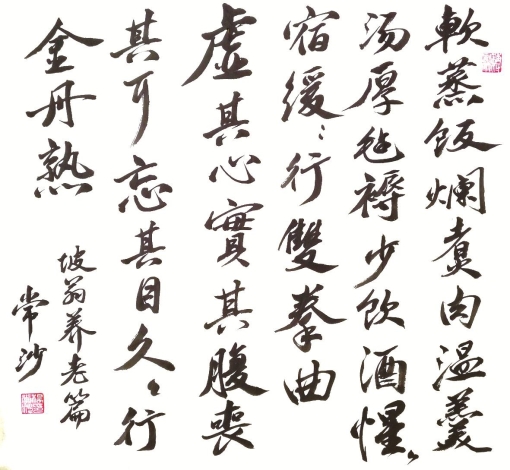 軟蒸飯爛煮肉温羹
汤厚毡褥少飲酒惺〻
宿緩〻行雙拳曲
虛其心實其腹喪
其耳忘其目久〻行
金丹熟
坡翁养老篇
常沙